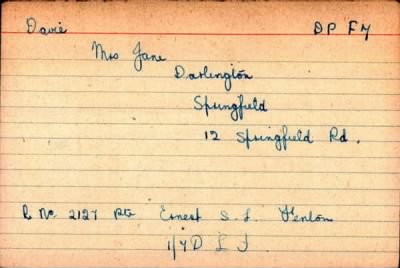 Davie DP F7
Mrs Jane
Darlington
Springfield
12 Springfield Rd.
R No. 2127 Pte Ernest S. L. Fenton
1/7 D L I.